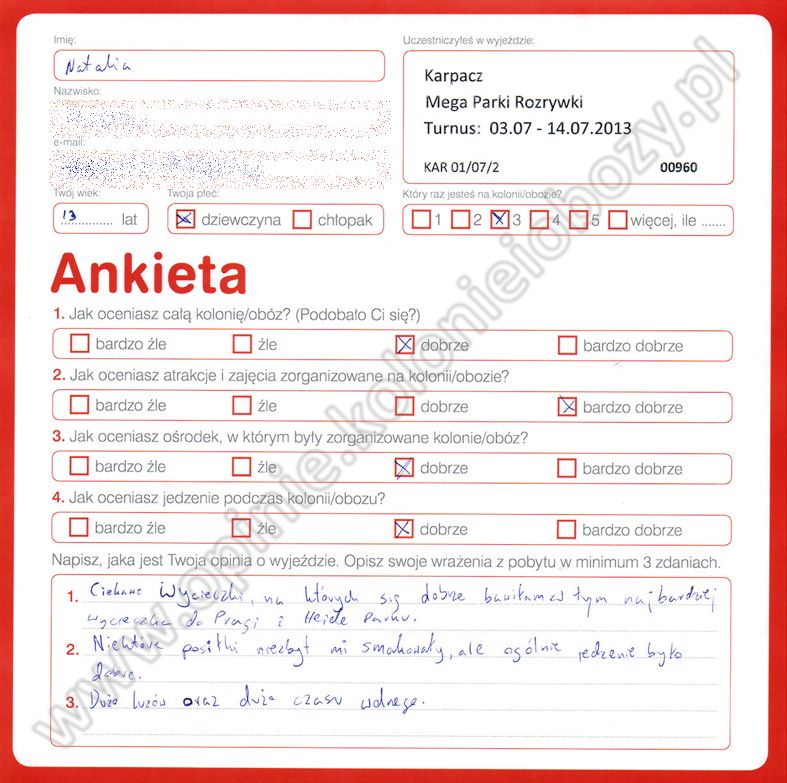 Imię:
Natalia
Uczestniczyłeś w wyjeździe:
Karpacz
Mega Parki Rozrywki
Turnus: 03.07 - 14.07.2013
KAR 01/07/2 00960
Nazwisko:
e-mail:
Twój wiek:
13 lat
Twoja płeć:
dziewczyna chłopak
Który raz jesteś na kolonii/obozie?
1 2 3 4 5 więcej, ile .......
Ankieta
1. Jak oceniasz całą kolonię/obóz? (Podobało Ci się?)
bardzo źle źle dobrze bardzo dobrze
2. Jak oceniasz atrakcje i zajęcia zorganizowane na kolonii/obozie?
bardzo źle źle dobrze bardzo dobrze
3. Jak oceniasz ośrodek, w którym były zorganizowane kolonie/obóz?
bardzo źle źle dobrze bardzo dobrze
4. Jak oceniasz jedzenie podczas kolonii/obozu?
bardzo źle źle dobrze bardzo dobrze
Napisz, jaka jest Twoja opinia o wyjeździe. Opisz swoje wrażenia z pobytu w minimum 3 zdaniach.
1. Ciekawe wycieczki, na których się dobrze bawiłam w tym najbardziej
wycieczka do Pragi i Heide Parku.
2. Niektóre posiłki niezbyt mi smakowały, ale ogólnie jedzenie było
dobre.
3. Dużo luzów oraz dużo czasu wolnego.
www.opinie.kolonieiobozy.pl